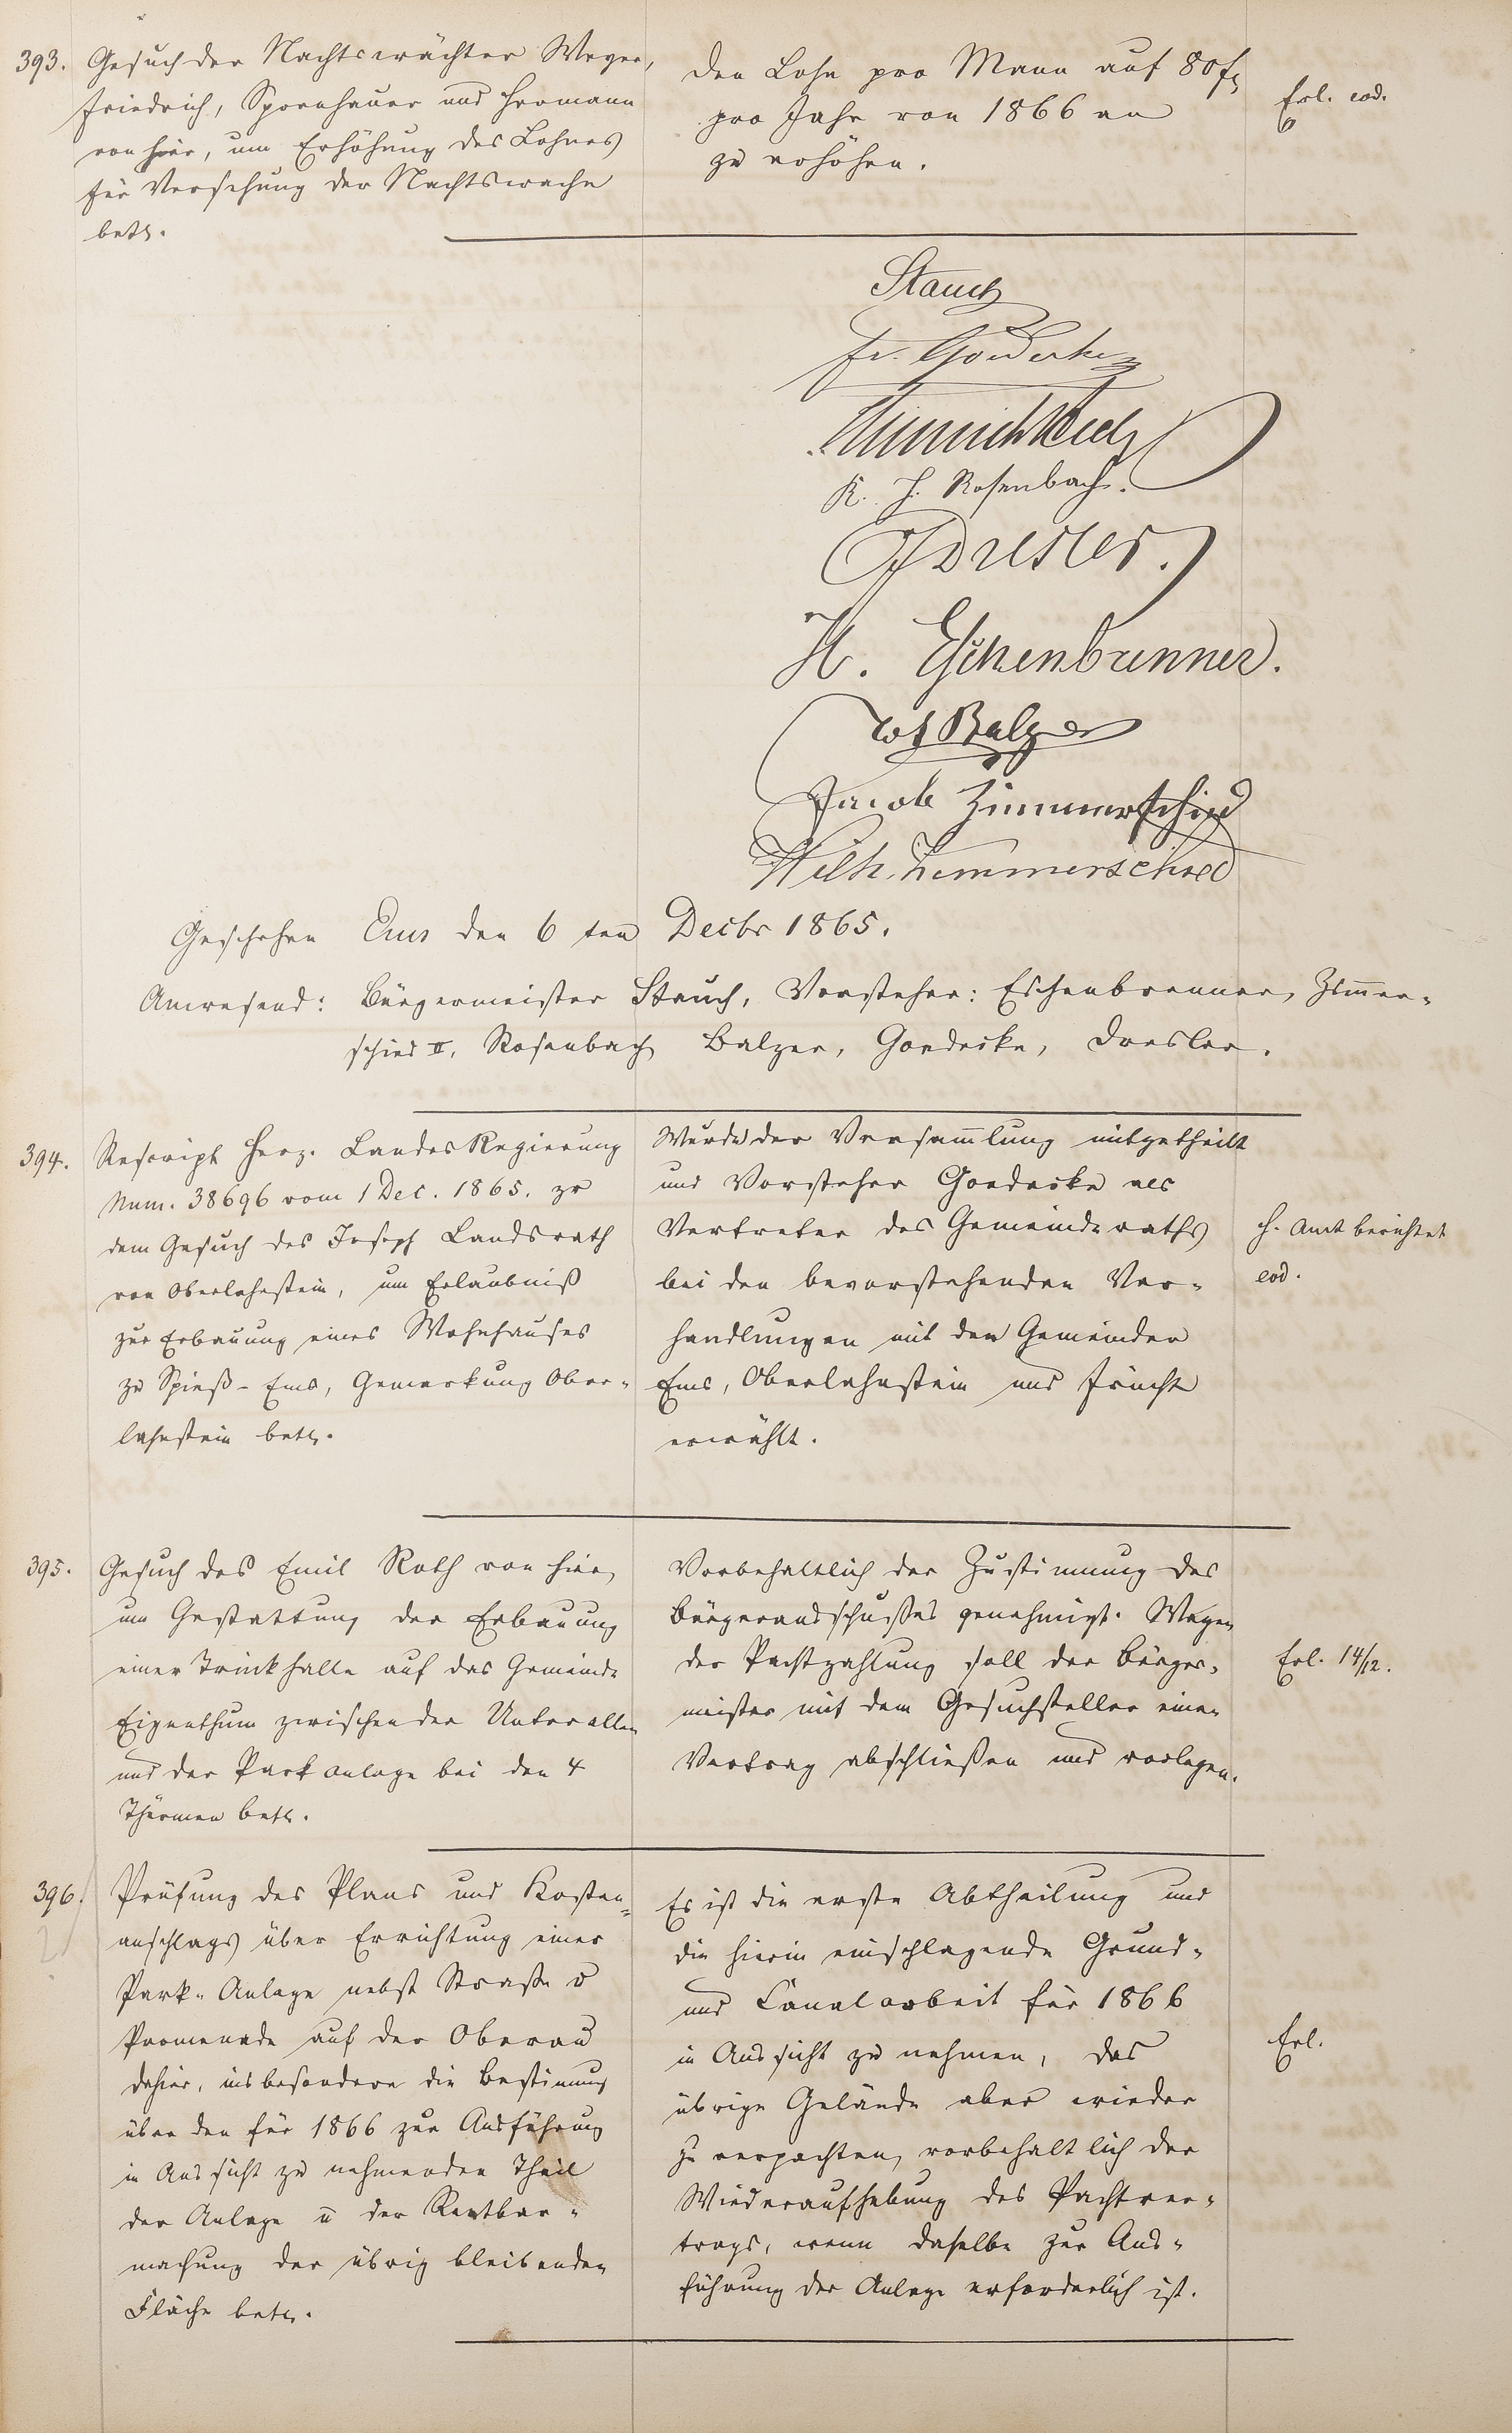 393.
Gesuch der Nachtswächter Weyer,
Friedrich, Spornhauer und Hermann
von hier, um Erhöhung des Lohnes
für Versehung der Nachtswache
betr.
den Lohn pro Mann auf 80 fl
pro Jahr von 1866 an
zu erhöhen.
Erl. eod.
Stauch
Fr. Goedecke
K. H. Rosenbach.
Dresler.
H. Eschenbrenner.
Balzer
Jacob Zimmerschied
Wilh. Zimmerschied
Geschehen Ems den 6ten Decbr 1865.
Anwesend: Bürgermeister Stauch, Vorsteher: Eschenbrenner, Zimmer-
schied II, Rosenbach Balzer, Goedecke, Dresler.
394.
Rescript Herz. Landes Regierung
Num. 38696 vom 1 Dec. 1865. zu
dem Gesuch des Joseph Landsrath
von Oberlahnstein, um Erlaubniß
zur Erbauung eines Wohnhauses
zu Spieß-Ems, Gemarkung Ober-
lahnstein betr.
Wurde der Versammlung mitgetheilt
und Vorsteher Goedecke als
Vertreter des Gemeinderaths
bei den bevorstehenden Ver-
handlungen mit den Gemeinden
Ems, Oberlahnstein und Frücht
erwählt.
H. Amt berichtet
eod.
395.
Gesuch des Emil Roth von hier,
um Gestattung der Erbauung
einer Trinkhalle auf das Gemeinde
Eigenthum zwischen der Unterallee
und der Parkanlage bei den 4
Thürmen betr.
Vorbehaltlich der Zustimmung des
Bürgerausschußes genehmigt. Wegen
der Pachtzahlung soll der Bürger-
meister mit dem Gesuchsteller einen
Vertrag abschließen und vorlegen.
Erl. 14/12.
396.
Prüfung des Plans und Kosten-
anschlags über Errichtung einer
Park-Anlage nebst Straße u
Promenade auf der Oberau
dahier, insbesondere die Bestimmung
über den für 1866 zur Ausführung
in Aussicht zu nehmenden Theil
der Anlage u der Rentbar-
machung der übrig bleibenden
Fläche betr.
Es ist die erste Abtheilung und
die hierin einschlagende Grund-
und Canalarbeit für 1866
in Aussicht zu nehmen, das
übrige Gelände aber wieder
zu verpachten, vorbehaltlich der
Wiederaufhebung des Pachtver-
trags, wenn daselbe zur Aus-
führung der Anlage erforderlich ist.
Erl.